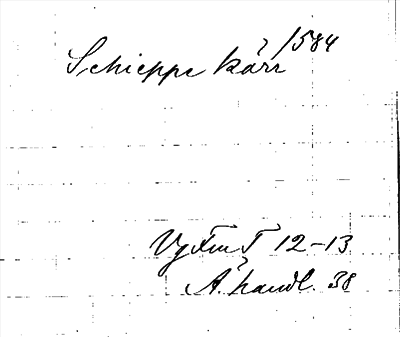 Schieppe kärr 1584
Vg Fm T 12-13
Ä. handl. 38